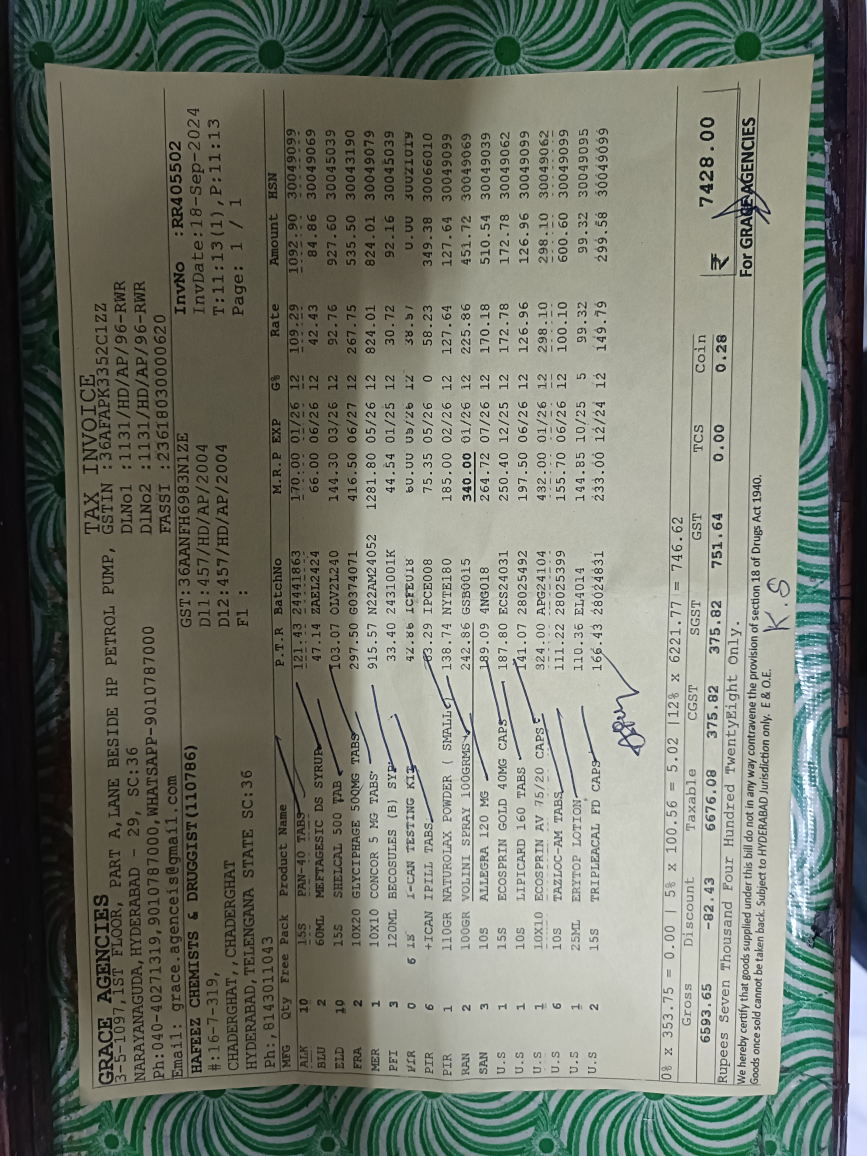 TAX INVOICE
GRACE AGENCIES
3-5-1097,1ST FLOOR, PART A,LANE BESIDE HP PETROL PUMP,
NARAYANAGUDA,HYDERABAD - 29, SC:36
Ph:040-40271319,9010787000,WHATSAPP-9010787000
Email: grace.agenceis@gmail.com
GSTIN :36AFAPK3352C1ZZ
DLNo1 :1131/HD/AP/96-RWR
DlNo2 :1131/HD/AP/96-RWR
FASSI :23618030000620
HAFEEZ CHEMISTS & DRUGGIST(110786)
#:16-7-319,
CHADERGHAT,,CHADERGHAT
HYDERABAD,TELENGANA STATE SC:36
Ph:,8143011043
GST:36AANFH6983N1ZE
D11:457/HD/AP/2004
D12:457/HD/AP/2004
F1 :
InvNo :RR405502
InvDate:18-Sep-2024
T:11:13(1),P:11:13
Page: 1 / 1
MFG Qty Free Pack Product Name P.T.R BatchNo M.R.P EXP G% Rate Amount HSN
ALK 10 15S PAN-40 TABS 121.43 24441863 170.00 01/26 12 109.29 1092.90 30049099
BLU 2 60ML MEFTAGESIC DS SYRUP 47.14 ZAEL2424 66.00 06/26 12 42.43 84.86 30049069
ELD 10 15S SHELCAL 500 TAB 103.07 OLV2L240 144.30 03/26 12 92.76 927.60 30045039
FRA 2 10X20 GLYCIPHAGE 500MG TABS 297.50 G0374071 416.50 06/27 12 267.75 535.50 30043190
MER 1 10X10 CONCOR 5 MG TABS 915.57 N22AM24052 1281.80 05/26 12 824.01 824.01 30049079
PFI 3 120ML BECOSULES (B) SYP 33.40 2431001K 44.54 01/25 12 30.72 92.16 30045039
0 6 1S I-CAN TESTING KIT 12 0.00
PIR 6 +ICAN IPILL TABS 63.29 IPCE008 75.35 05/26 0 58.23 349.38 30066010
PIR 1 110GR NATUROLAX POWDER ( SMALL 138.74 NYTE180 185.00 02/26 12 127.64 127.64 30049099
RAN 2 100GR VOLINI SPRAY 100GRMS 242.86 GSB0015 340.00 01/26 12 225.86 451.72 30049069
SAN 3 10S ALLEGRA 120 MG 189.09 4NG018 264.72 07/26 12 170.18 510.54 30049039
U.S 1 15S ECOSPRIN GOLD 40MG CAPS 187.80 ECS24031 250.40 12/25 12 172.78 172.78 30049062
U.S 1 10S LIPICARD 160 TABS 141.07 28025492 197.50 06/26 12 126.96 126.96 30049099
U.S 1 10X10 ECOSPRIN AV 75/20 CAPS 324.00 APG24104 432.00 01/26 12 298.10 298.10 30049062
U.S 6 10S TAZLOC-AM TABS 111.22 28025399 155.70 06/26 12 100.10 600.60 30049099
U.S 1 25ML ERYTOP LOTION 110.36 EL4014 144.85 10/25 5 99.32 99.32 30049095
U.S 2 15S TRIPLEACAL FD CAPS 166.43 28024831 233.00 12/24 12 149.79 299.58 30049099
0% x 353.75 = 0.00 | 5% x 100.56 = 5.02 |12% x 6221.77 = 746.62
Gross Discount Taxable CGST SGST GST TCS Coin
6593.65 -82.43 6676.08 375.82 375.82 751.64 0.00 0.28
₹ 7428.00
Rupees Seven Thousand Four Hundred TwentyEight Only.
We hereby certify that goods supplied under this bill do not in any way contravene the provision of section 18 of Drugs Act 1940.
Goods once sold cannot be taken back. Subject to HYDERABAD Jurisdiction only. E & O.E.
K.S
For GRACE AGENCIES